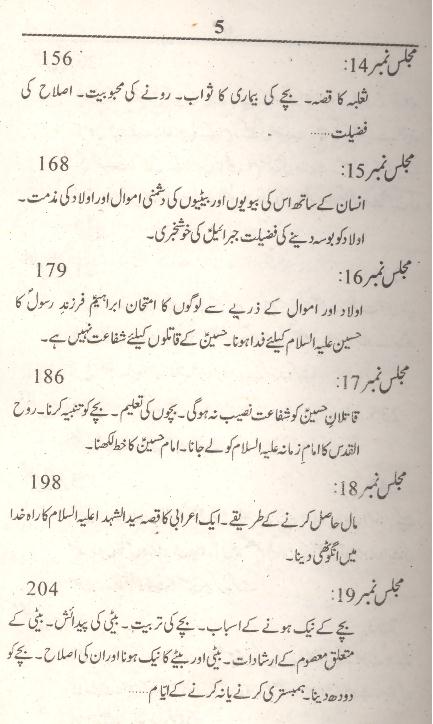 5
مجلس نمبر 14: 156
ثعلبہ کا قصہ۔ بچے کی بیماری کا ثواب۔ رونے کی محبوبیت۔ اصلاح کی
فضیلت......
مجلس نمبر 15: 168
انسان کے ساتھ اس کی بیویوں اور بیٹیوں کی دشمنی اموال اور اولاد کی مذمت۔
اولاد کو بوسہ دینے کی فضیلت جبرائیلؑ کی خوشخبری۔
مجلس نمبر 16: 179
اولاد اور اموال کے ذریعے سے لوگوں کا امتحان ابراہیمؑ فرزندِ رسولؐ کا
حسین علیہ السلام کیلئے فدا ہونا۔ حسینؑ کے قاتلوں کیلئے شفاعت نہیں ہے۔
مجلس نمبر 17: 186
قاتلانِ حسینؑ کو شفاعت نصیب نہ ہوگی۔ بچوں کی تعلیم۔ بچے کو تنبیہ کرنا۔ روح
القدس کا امامِ زمانہ علیہ السلام کو لے جانا۔ امام حسینؑ کا خط لکھنا۔
مجلس نمبر 18: 198
مال حاصل کرنے کے طریقے۔ ایک اعرابی کا قصہ سید الشہدا علیہ السلام کا راہ خدا
میں انگوٹھی دینا۔
مجلس نمبر 19: 204
بچے کے نیک ہونے کے اسباب۔ بچے کی تربیت۔ بیٹی کی پیدائش۔ بیٹی کے
متعلق معصومؑ کے ارشادات۔ بیٹی اور بیٹے کا نیک ہونا اور ان کی اصلاح۔ بچے کو
دودھ دینا۔ ہمبستری کرنے یا نہ کرنے کے ایّام......